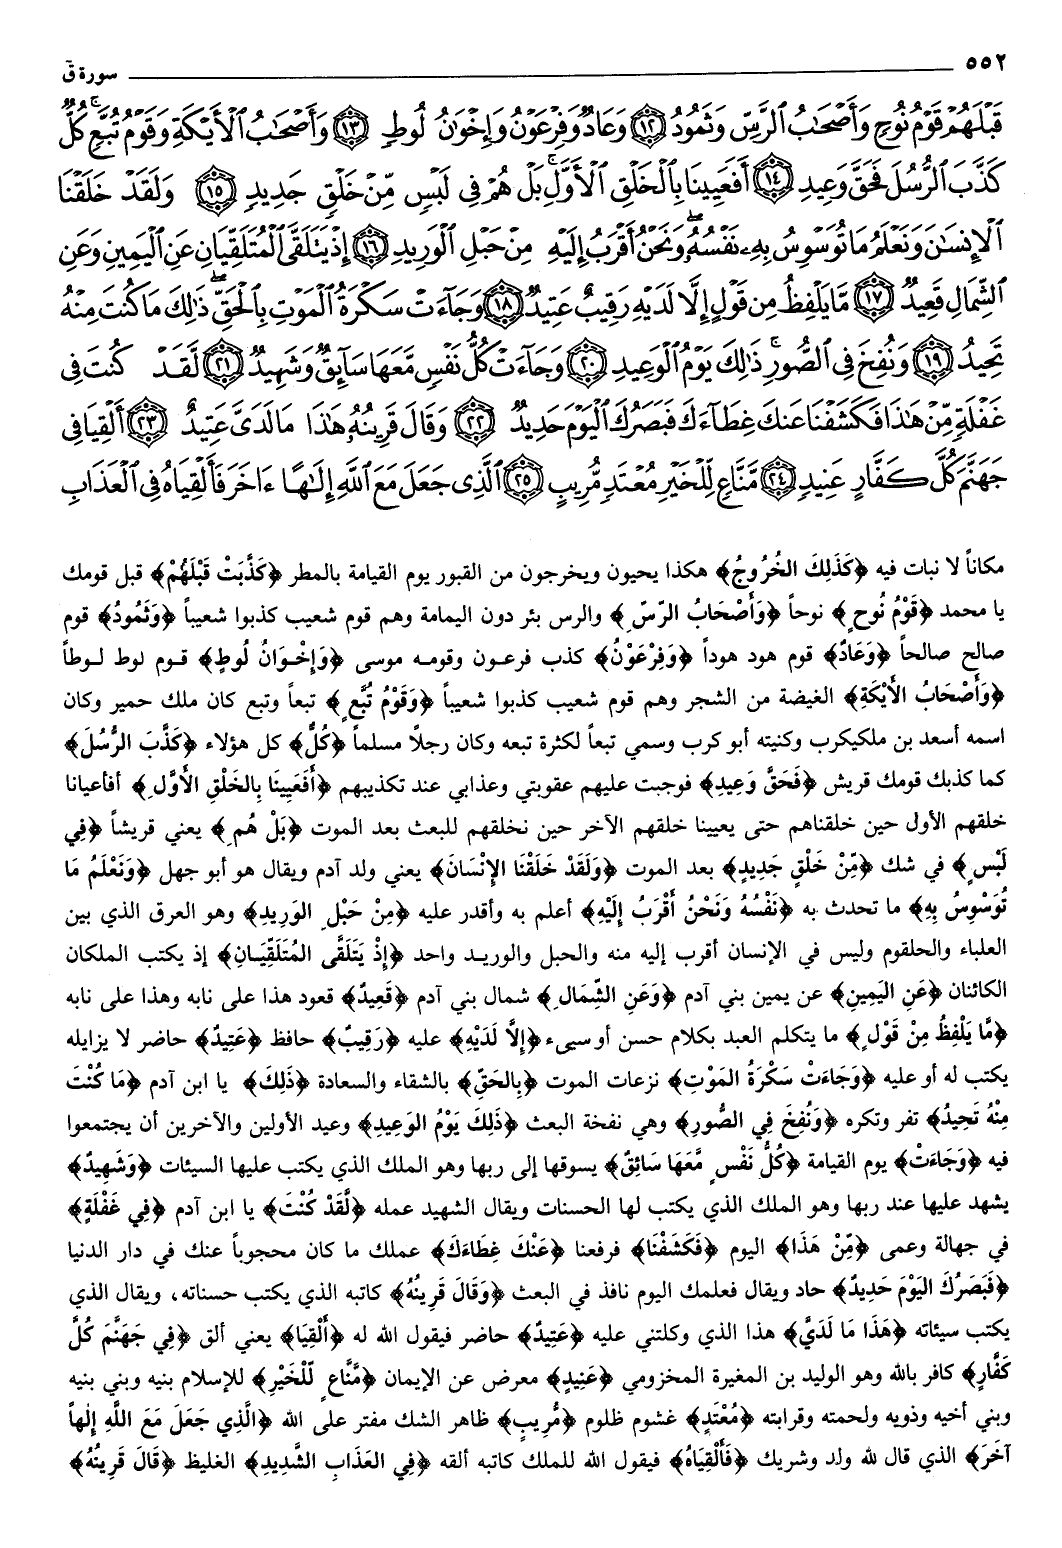 ٥٥٢
سورة قۤ
قَبْلَهُمْ قَوْمُ نُوحٍ وَأَصْحَٰبُ ٱلرَّسِّ وَثَمُودُ ١٢ وَعَادٌ وَفِرْعَوْنُ وَإِخْوَٰنُ لُوطٍ ١٣ وَأَصْحَٰبُ ٱلْأَيْكَةِ وَقَوْمُ تُبَّعٍ ۚ كُلٌّ
كَذَّبَ ٱلرُّسُلَ فَحَقَّ وَعِيدِ ١٤ أَفَعَيِينَا بِٱلْخَلْقِ ٱلْأَوَّلِ ۚ بَلْ هُمْ فِى لَبْسٍ مِّنْ خَلْقٍ جَدِيدٍ ١٥ وَلَقَدْ خَلَقْنَا
ٱلْإِنسَٰنَ وَنَعْلَمُ مَا تُوَسْوِسُ بِهِۦ نَفْسُهُۥ ۖ وَنَحْنُ أَقْرَبُ إِلَيْهِ مِنْ حَبْلِ ٱلْوَرِيدِ ١٦ إِذْ يَتَلَقَّى ٱلْمُتَلَقِّيَانِ عَنِ ٱلْيَمِينِ وَعَنِ
ٱلشِّمَالِ قَعِيدٌ ١٧ مَّا يَلْفِظُ مِن قَوْلٍ إِلَّا لَدَيْهِ رَقِيبٌ عَتِيدٌ ١٨ وَجَآءَتْ سَكْرَةُ ٱلْمَوْتِ بِٱلْحَقِّ ۖ ذَٰلِكَ مَا كُنتَ مِنْهُ
تَحِيدُ ١٩ وَنُفِخَ فِى ٱلصُّورِ ۚ ذَٰلِكَ يَوْمُ ٱلْوَعِيدِ ٢٠ وَجَآءَتْ كُلُّ نَفْسٍ مَّعَهَا سَآئِقٌ وَشَهِيدٌ ٢١ لَّقَدْ كُنتَ فِى
غَفْلَةٍ مِّنْ هَٰذَا فَكَشَفْنَا عَنكَ غِطَآءَكَ فَبَصَرُكَ ٱلْيَوْمَ حَدِيدٌ ٢٢ وَقَالَ قَرِينُهُۥ هَٰذَا مَا لَدَىَّ عَتِيدٌ ٢٣ أَلْقِيَا فِى
جَهَنَّمَ كُلَّ كَفَّارٍ عَنِيدٍ ٢٤ مَّنَّاعٍ لِّلْخَيْرِ مُعْتَدٍ مُّرِيبٍ ٢٥ ٱلَّذِى جَعَلَ مَعَ ٱللَّهِ إِلَٰهًا ءَاخَرَ فَأَلْقِيَاهُ فِى ٱلْعَذَابِ
مكاناً لا نبات فيه ﴿كَذَلِكَ الخُرُوجُ﴾ هكذا يحيون ويخرجون من القبور يوم القيامة بالمطر ﴿كَذَّبَتْ قَبْلَهُمْ﴾ قبل قومك
يا محمد ﴿قَوْمُ نُوحٍ﴾ نوحاً ﴿وَأَصْحَابُ الرَّسِّ﴾ والرس بئر دون اليمامة وهم قوم شعيب كذبوا شعيباً ﴿وَثَمُودُ﴾ قوم
صالح صالحاً ﴿وَعَادٌ﴾ قوم هود هوداً ﴿وَفِرْعَوْنُ﴾ كذب فرعون وقومه موسى ﴿وَإِخْوَانُ لُوطٍ﴾ قوم لوط لوطاً
﴿وَأَصْحَابُ الأَيْكَةِ﴾ الغيضة من الشجر وهم قوم شعيب كذبوا شعيباً ﴿وَقَوْمُ تُبَّعٍ﴾ تبعاً وتبع كان ملك حمير وكان
اسمه أسعد بن ملكيكرب وكنيته أبو كرب وسمي تبعاً لكثرة تبعه وكان رجلاً مسلماً ﴿كُلٌّ﴾ كل هؤلاء ﴿كَذَّبَ الرُّسُلَ﴾
كما كذبك قومك قريش ﴿فَحَقَّ وَعِيدِ﴾ فوجبت عليهم عقوبتي وعذابي عند تكذيبهم ﴿أَفَعَيِينَا بِالخَلْقِ الأَوَّلِ﴾ أفأعيانا
خلقهم الأول حين خلقناهم حتى يعيينا خلقهم الآخر حين نخلقهم للبعث بعد الموت ﴿بَلْ هُمِ﴾ يعني قريشاً ﴿فِي
لَبْسٍ﴾ في شك ﴿مِّنْ خَلْقٍ جَدِيدٍ﴾ بعد الموت ﴿وَلَقَدْ خَلَقْنَا الإِنْسَانَ﴾ يعني ولد آدم ويقال هو أبو جهل ﴿وَنَعْلَمُ مَا
تُوَسْوِسُ بِهِ﴾ ما تحدث به ﴿نَفْسُهُ وَنَحْنُ أَقْرَبُ إِلَيْهِ﴾ أعلم به وأقدر عليه ﴿مِنْ حَبْلِ الوَرِيدِ﴾ وهو العرق الذي بين
العلباء والحلقوم وليس في الإنسان أقرب إليه منه والحبل والوريد واحد ﴿إِذْ يَتَلَقَّى المُتَلَقِّيَانِ﴾ إذ يكتب الملكان
الكاتنان ﴿عَنِ اليَمِينِ﴾ عن يمين بني آدم ﴿وَعَنِ الشِّمَالِ﴾ شمال بني آدم ﴿قَعِيدٌ﴾ قعود هذا على نابه وهذا على نابه
﴿مَّا يَلْفِظُ مِنْ قَوْلٍ﴾ ما يتكلم العبد بكلام حسن أو سيىء ﴿إِلَّا لَدَيْهِ﴾ عليه ﴿رَقِيبٌ﴾ حافظ ﴿عَتِيدٌ﴾ حاضر لا يزايله
يكتب له أو عليه ﴿وَجَاءَتْ سَكْرَةُ المَوْتِ﴾ نزعات الموت ﴿بِالحَقِّ﴾ بالشقاء والسعادة ﴿ذَلِكَ﴾ يا ابن آدم ﴿مَا كُنْتَ
مِنْهُ تَحِيدُ﴾ تفر وتكره ﴿وَنُفِخَ فِي الصُّورِ﴾ وهي نفخة البعث ﴿ذَلِكَ يَوْمُ الوَعِيدِ﴾ وعيد الأولين والآخرين أن يجتمعوا
فيه ﴿وَجَاءَتْ﴾ يوم القيامة ﴿كُلُّ نَفْسٍ مَّعَهَا سَائِقٌ﴾ يسوقها إلى ربها وهو الملك الذي يكتب عليها السيئات ﴿وَشَهِيدٌ﴾
يشهد عليها عند ربها وهو الملك الذي يكتب لها الحسنات ويقال الشهيد عمله ﴿لَّقَدْ كُنْتَ﴾ يا ابن آدم ﴿فِي غَفْلَةٍ﴾
في جهالة وعمى ﴿مِّنْ هَذَا﴾ اليوم ﴿فَكَشَفْنَا﴾ فرفعنا ﴿عَنْكَ غِطَاءَكَ﴾ عملك ما كان محجوباً عنك في دار الدنيا
﴿فَبَصَرُكَ اليَوْمَ حَدِيدٌ﴾ حاد ويقال فعلمك اليوم نافذ في البعث ﴿وَقَالَ قَرِينُهُ﴾ كاتبه الذي يكتب حسناته، ويقال الذي
يكتب سيئاته ﴿هَذَا مَا لَدَيَّ﴾ هذا الذي وكلتني عليه ﴿عَتِيدٌ﴾ حاضر فيقول الله له ﴿أَلْقِيَا﴾ يعني ألق ﴿فِي جَهَنَّمَ كُلَّ
كَفَّارٍ﴾ كافر بالله وهو الوليد بن المغيرة المخزومي ﴿عَنِيدٍ﴾ معرض عن الإيمان ﴿مَّنَّاعٍ لِّلْخَيْرِ﴾ للإسلام بنيه وبني بنيه
وبني أخيه وذويه ولحمته وقرابته ﴿مُعْتَدٍ﴾ غشوم ظلوم ﴿مُّرِيبٍ﴾ ظاهر الشك مفتر على الله ﴿الَّذِي جَعَلَ مَعَ اللَّهِ إِلٰهاً
آخَرَ﴾ الذي قال لله ولد وشريك ﴿فَأَلْقِيَاهُ﴾ فيقول الله للملك كاتبه ألقه ﴿فِي العَذَابِ الشَّدِيدِ﴾ الغليظ ﴿قَالَ قَرِينُهُ﴾